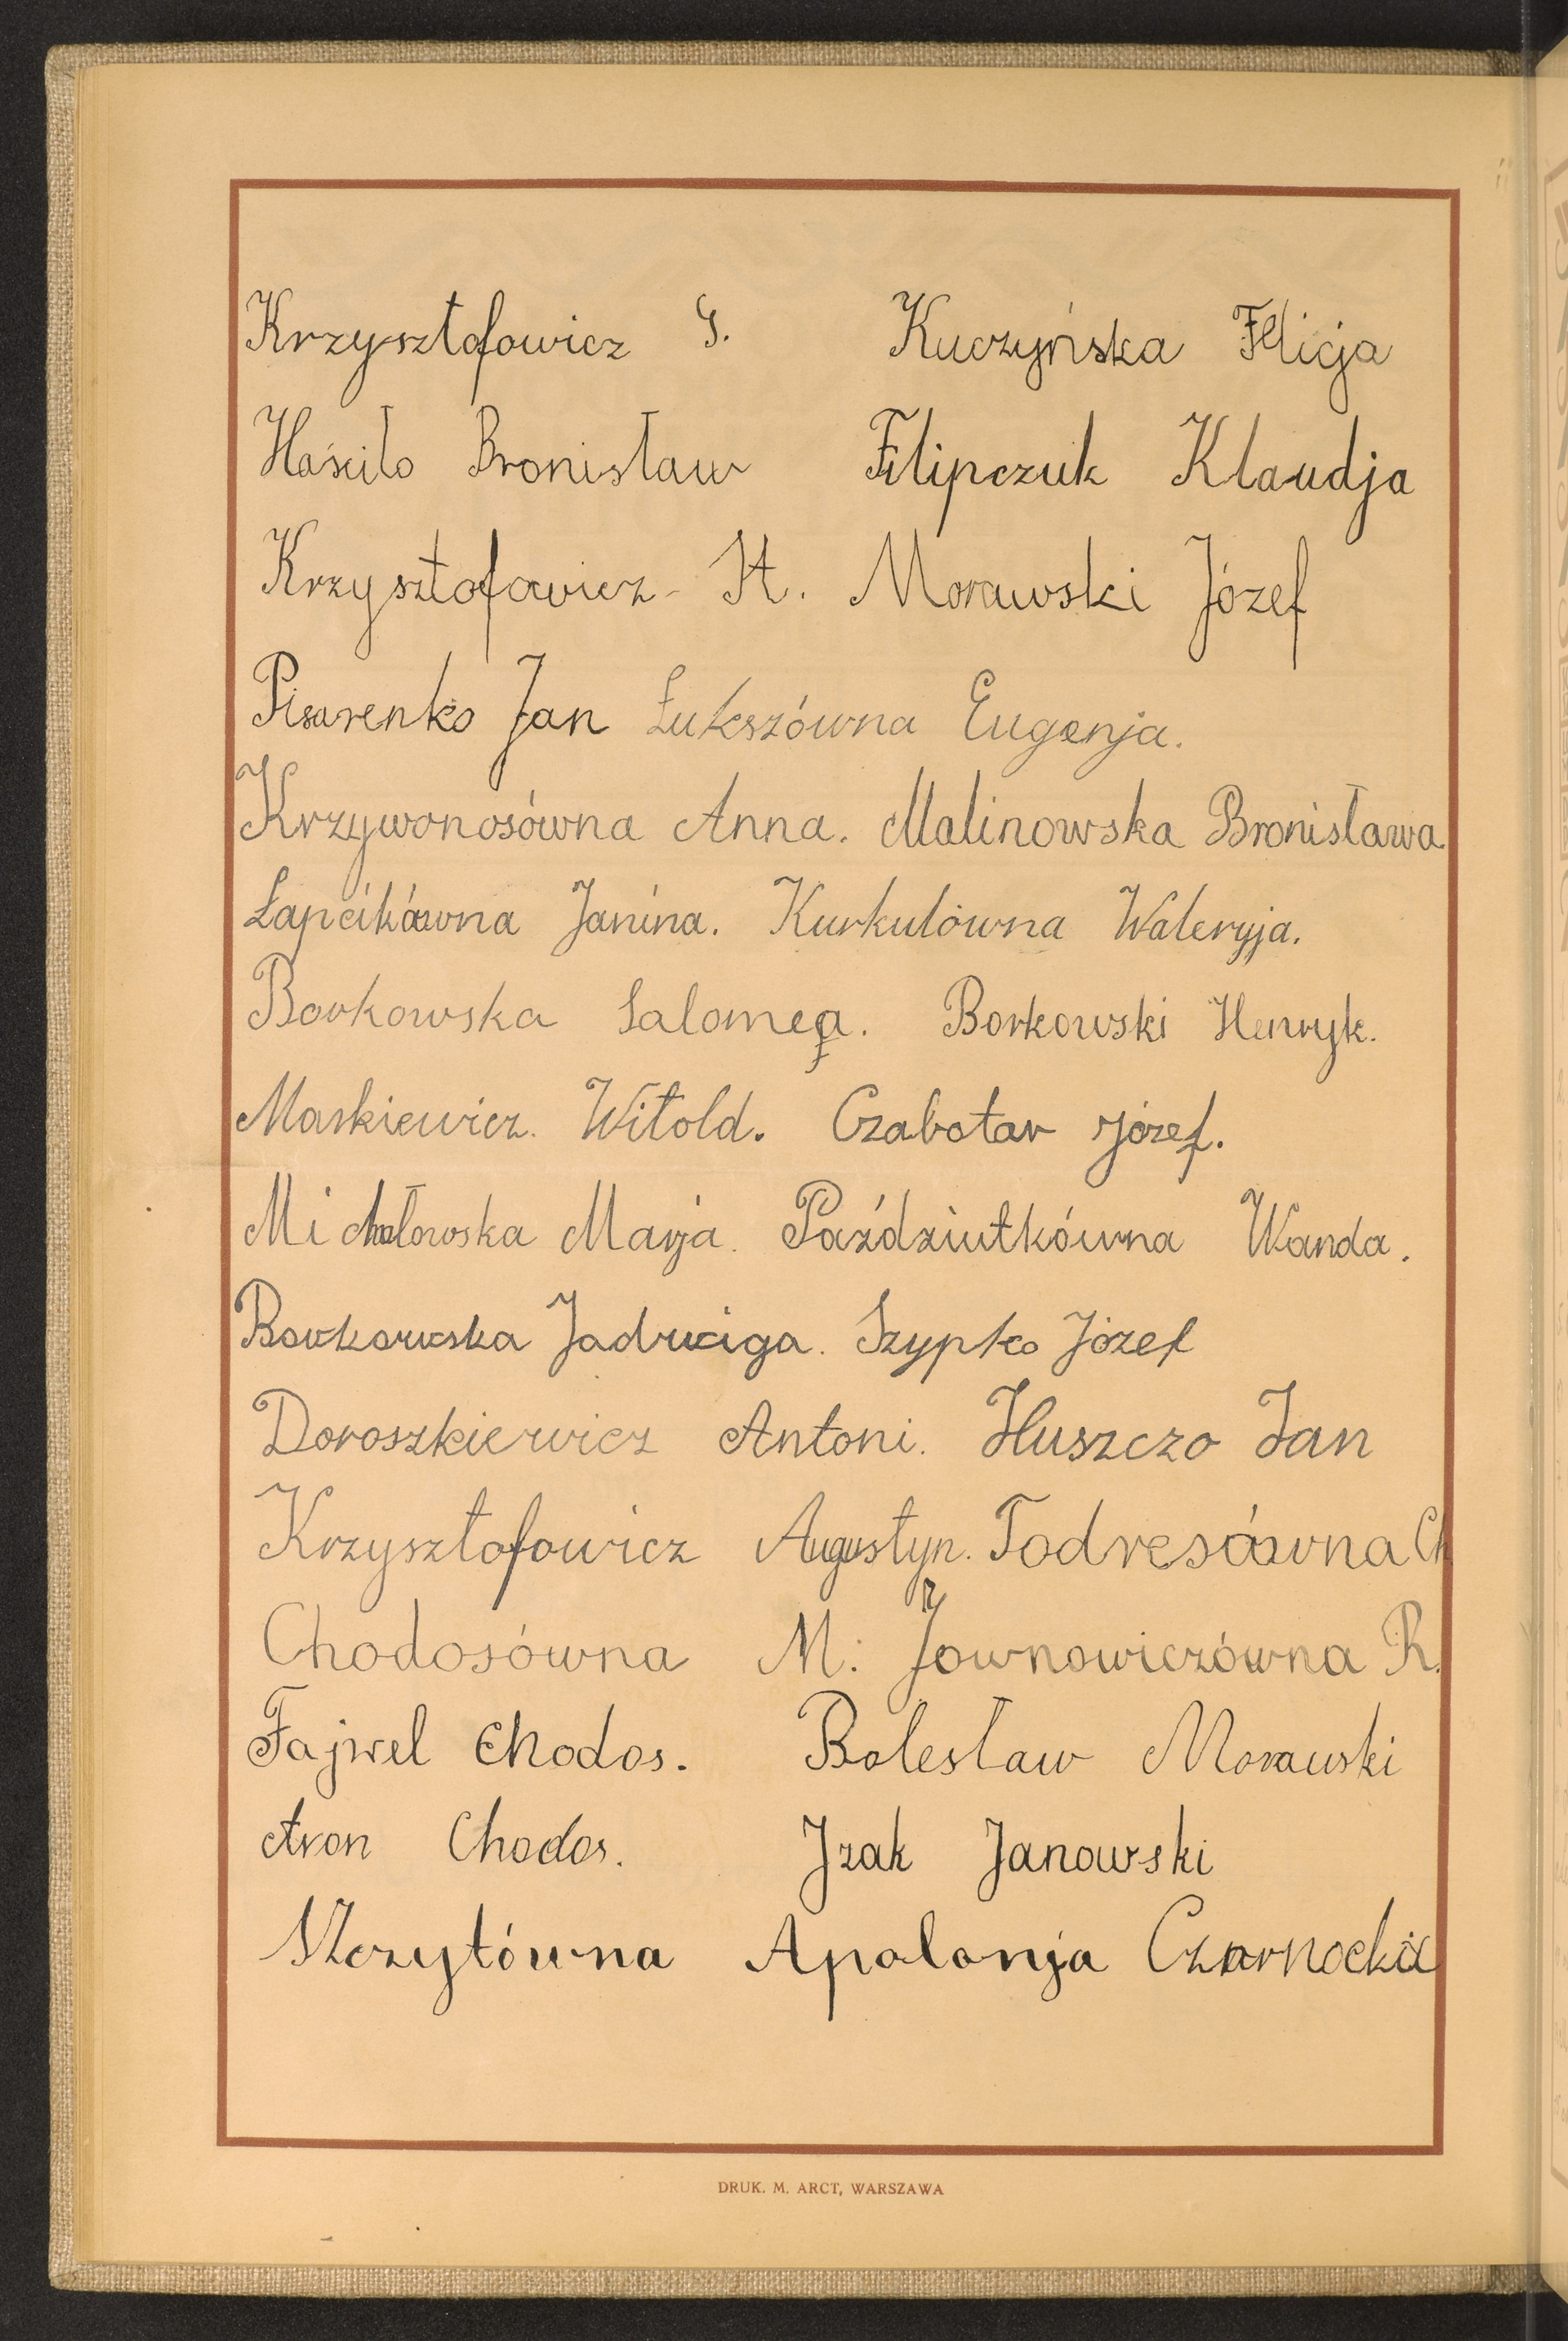 Krzysztofowicz G. Kuczyńska Felicja
Haściło Bronisław Filipczuk Klaudja
Krzysztofowicz St. Morawski Józef
Pisarenko Jan Łukszówna Eugenja.
Krzywonosówna Anna. Malinowska Bronisława.
Łapcikówna Janina. Kurkulówna Waleryja.
Borkowska Salomea. Borkowski Henryk.
Maskiewicz. Witold. Czabotar Józef.
Michałowska Marja. Paździutkówna Wanda.
Borkowska Jadwiga. Szypko Józef
Doroszkiewicz Antoni. Huszczo Jan
Krzysztofowicz Augustyn. Todresówna Ch
Chodosówna M. Jownowiczówna R.
Fajwel Chodos. Bolesław Morawski
Aron Chodos. Izak Janowski
Apolonja Czarnocka
DRUK. M. ARCT, WARSZAWA